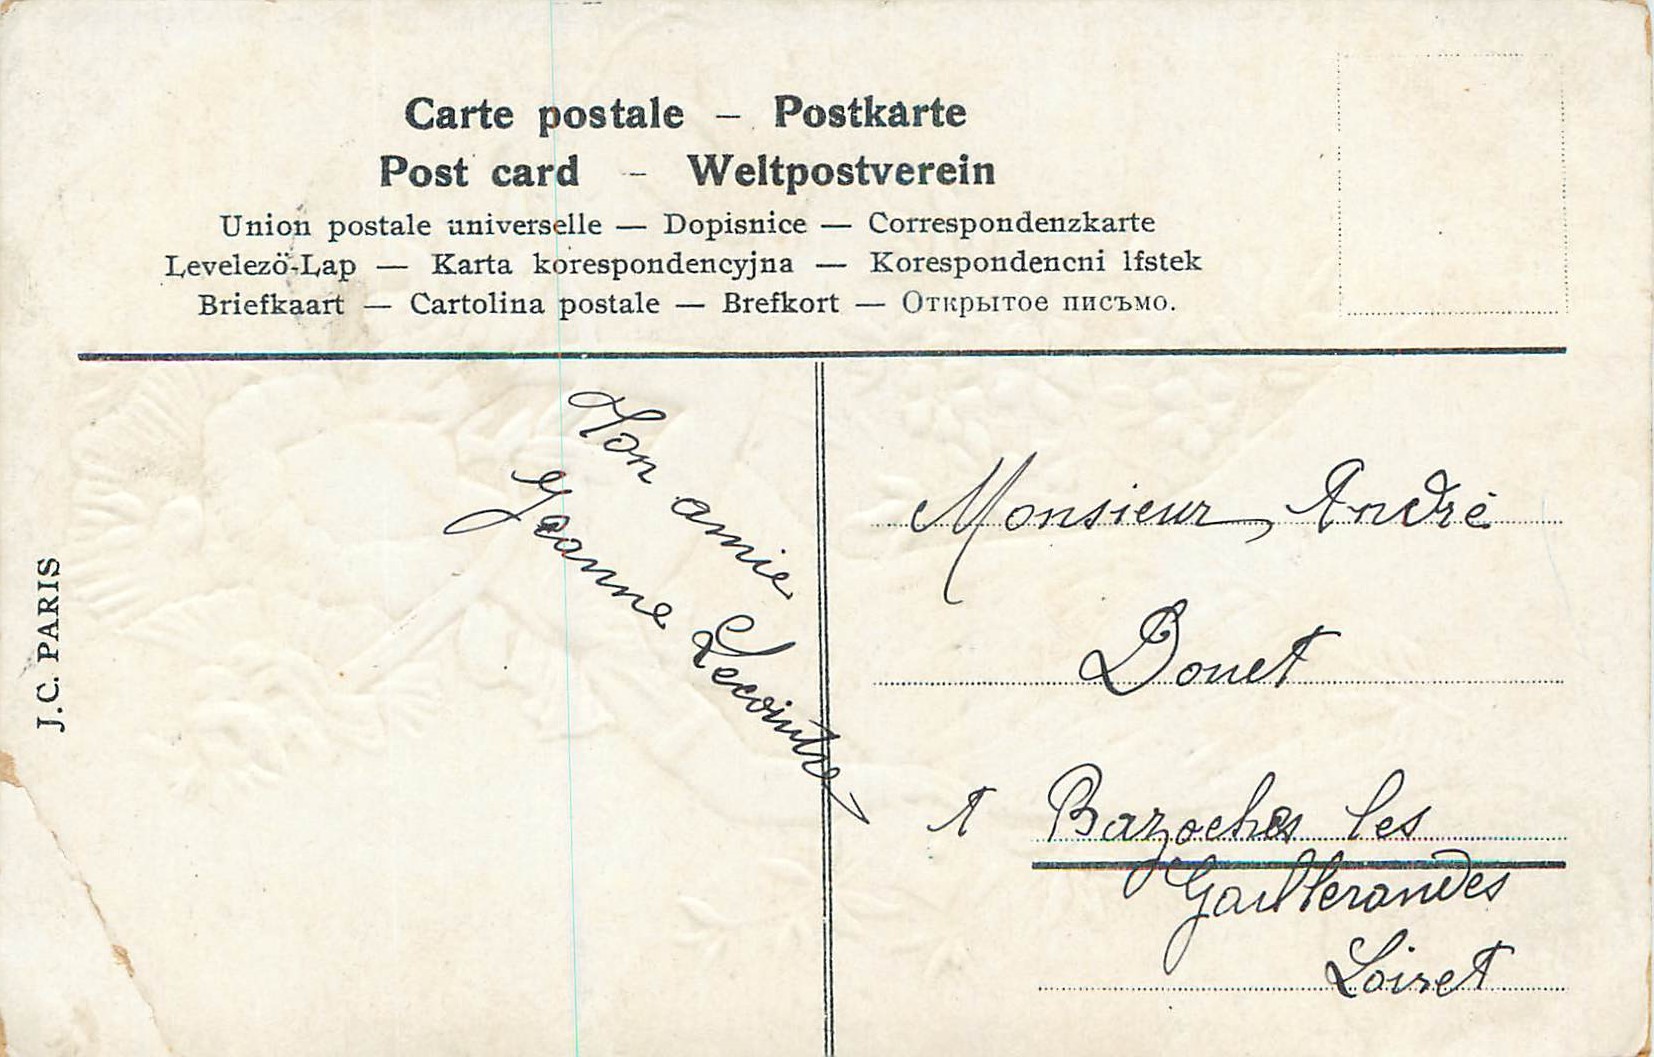 Carte postale – Postkarte
Post card – Weltpostverein
Union postale universelle — Dopisnice — Correspondenzkarte
Levelezö-Lap — Karta korespondencyjna — Korespondencni lfstek
Briefkaart — Cartolina postale — Brefkort — Открытое письмо.
J.C. PARIS
Ton amie
Jeanne Lecointre
Monsieur André
Douet
A Bazoches les
Gallerandes
Loiret